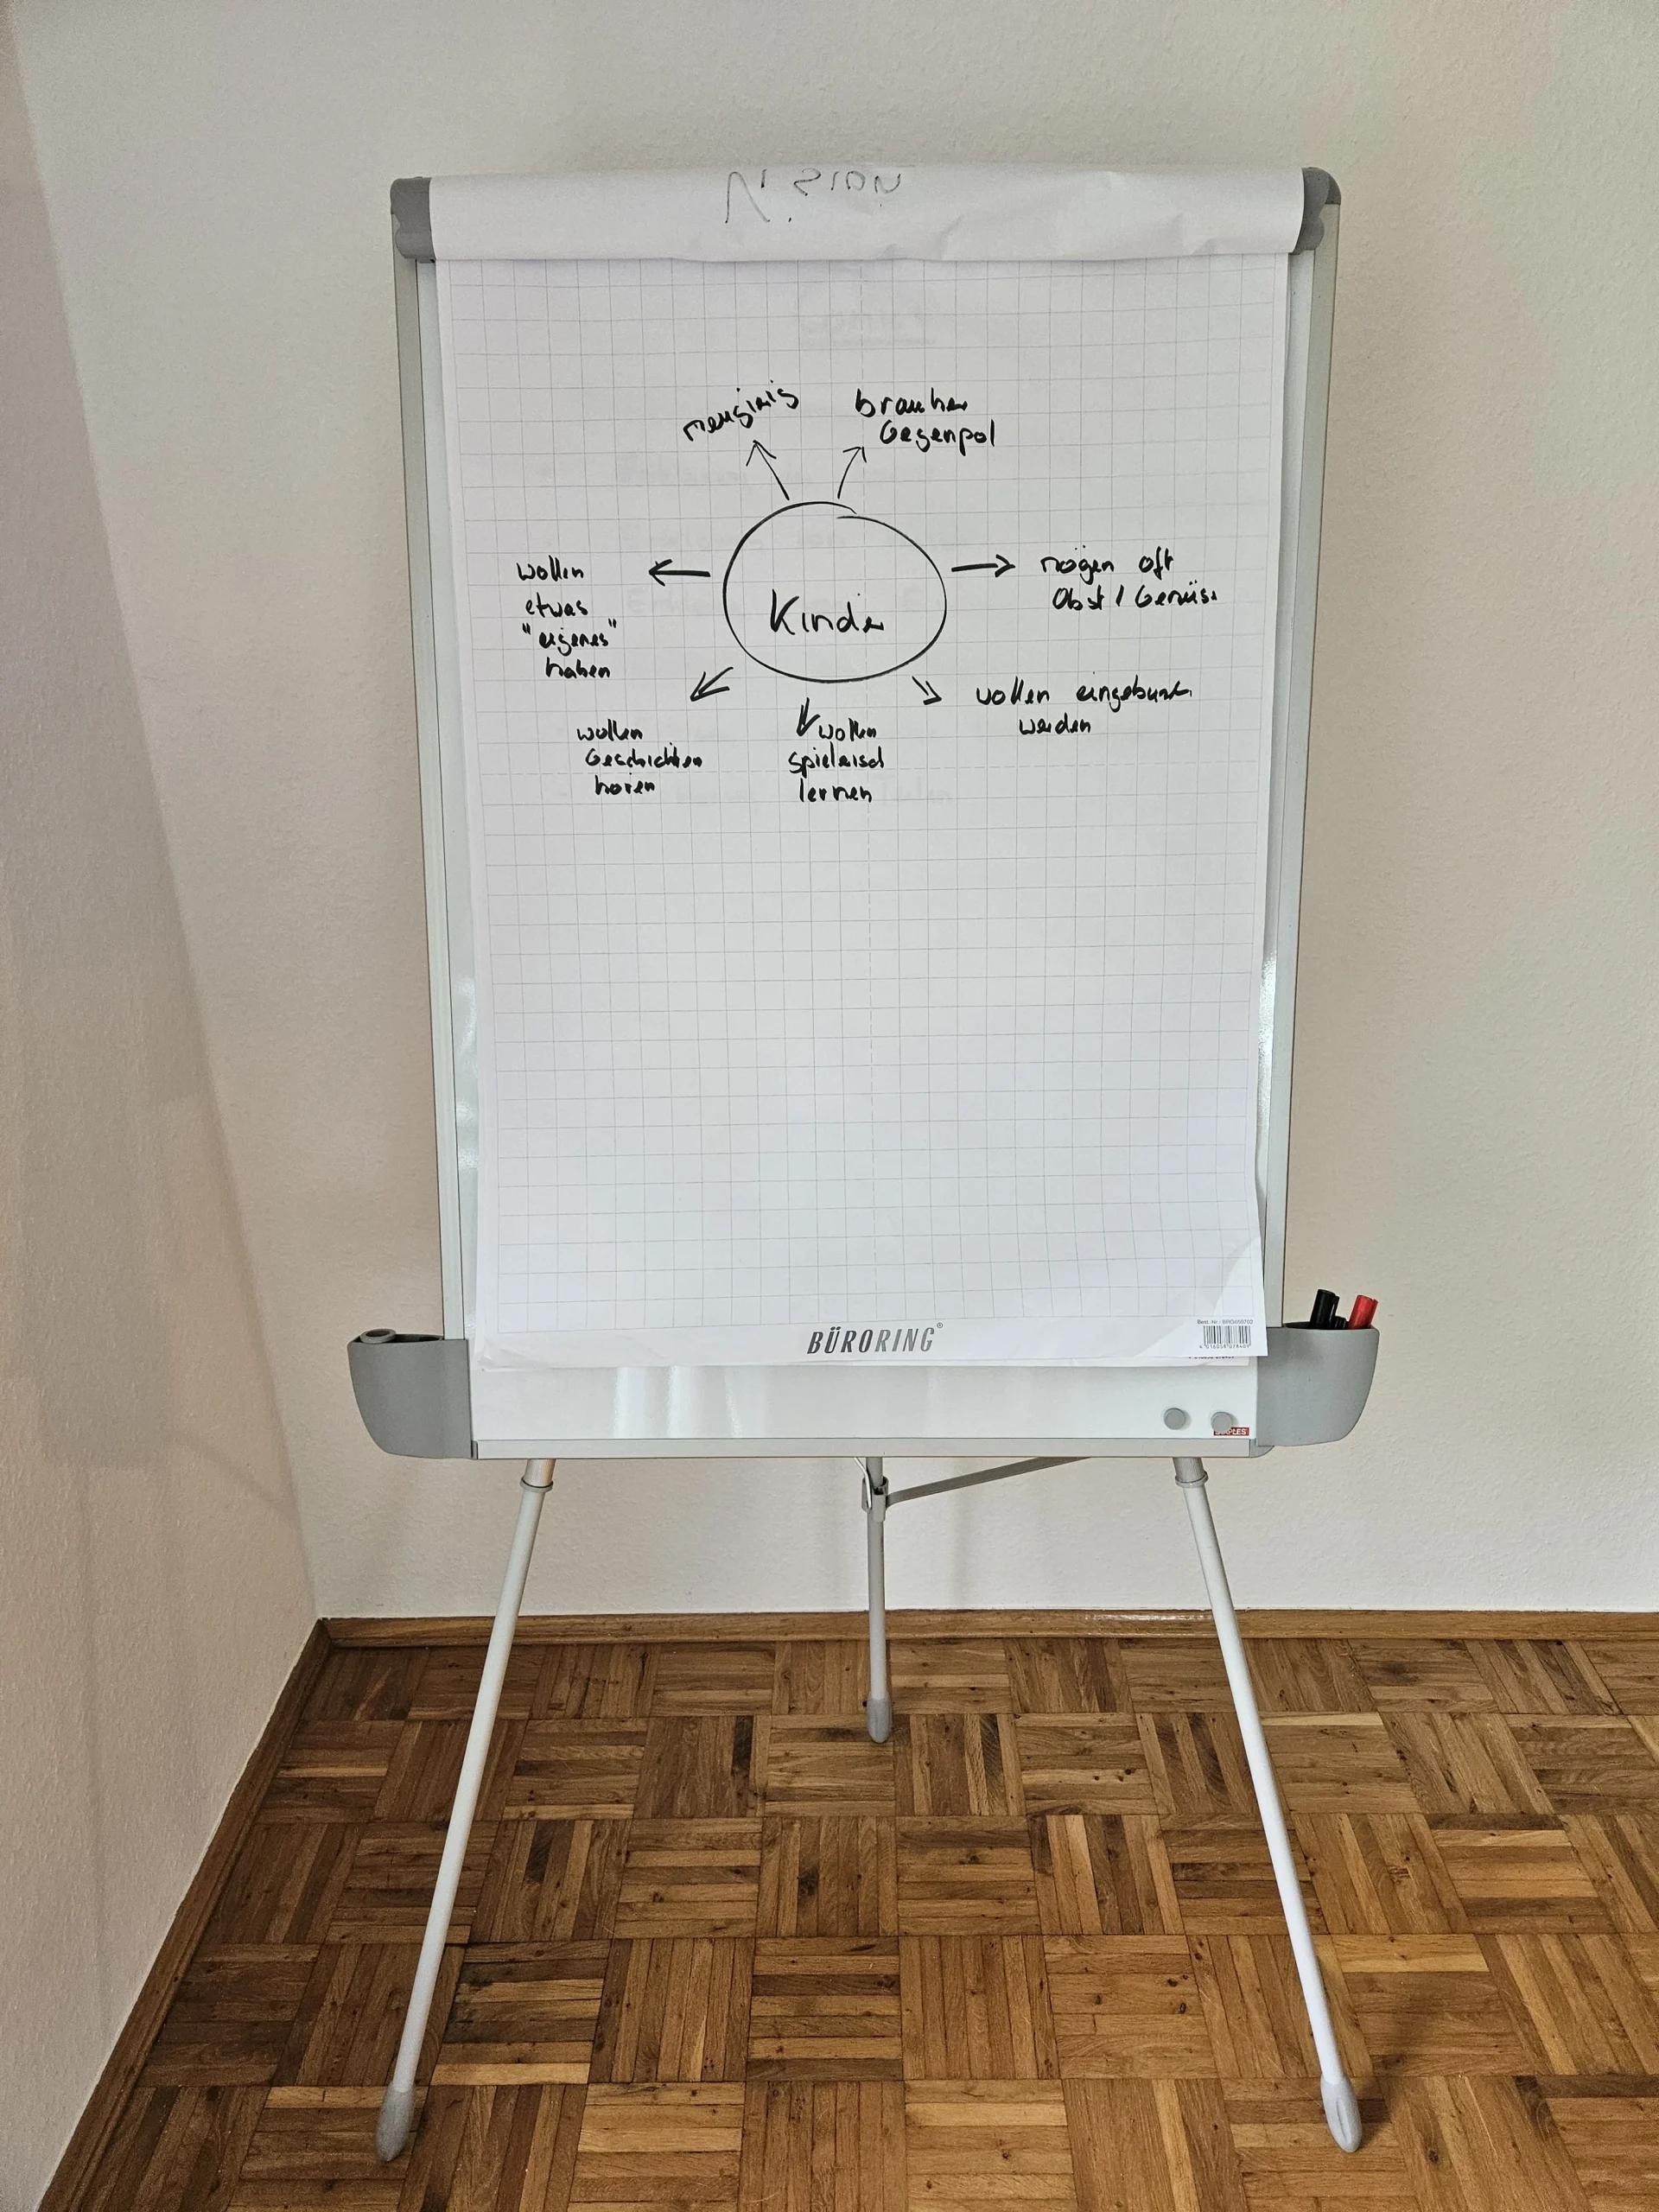 VISION
neugierig
brauchen
Gegenpol
wollen
etwas
"eigenes"
haben
Kinder
mögen oft
Obst / Gemüse
wollen
Geschichten
hören
wollen
spielerisch
lernen
wollen eingebunden
werden
BÜRORING®
Best. Nr.:
STAPLES